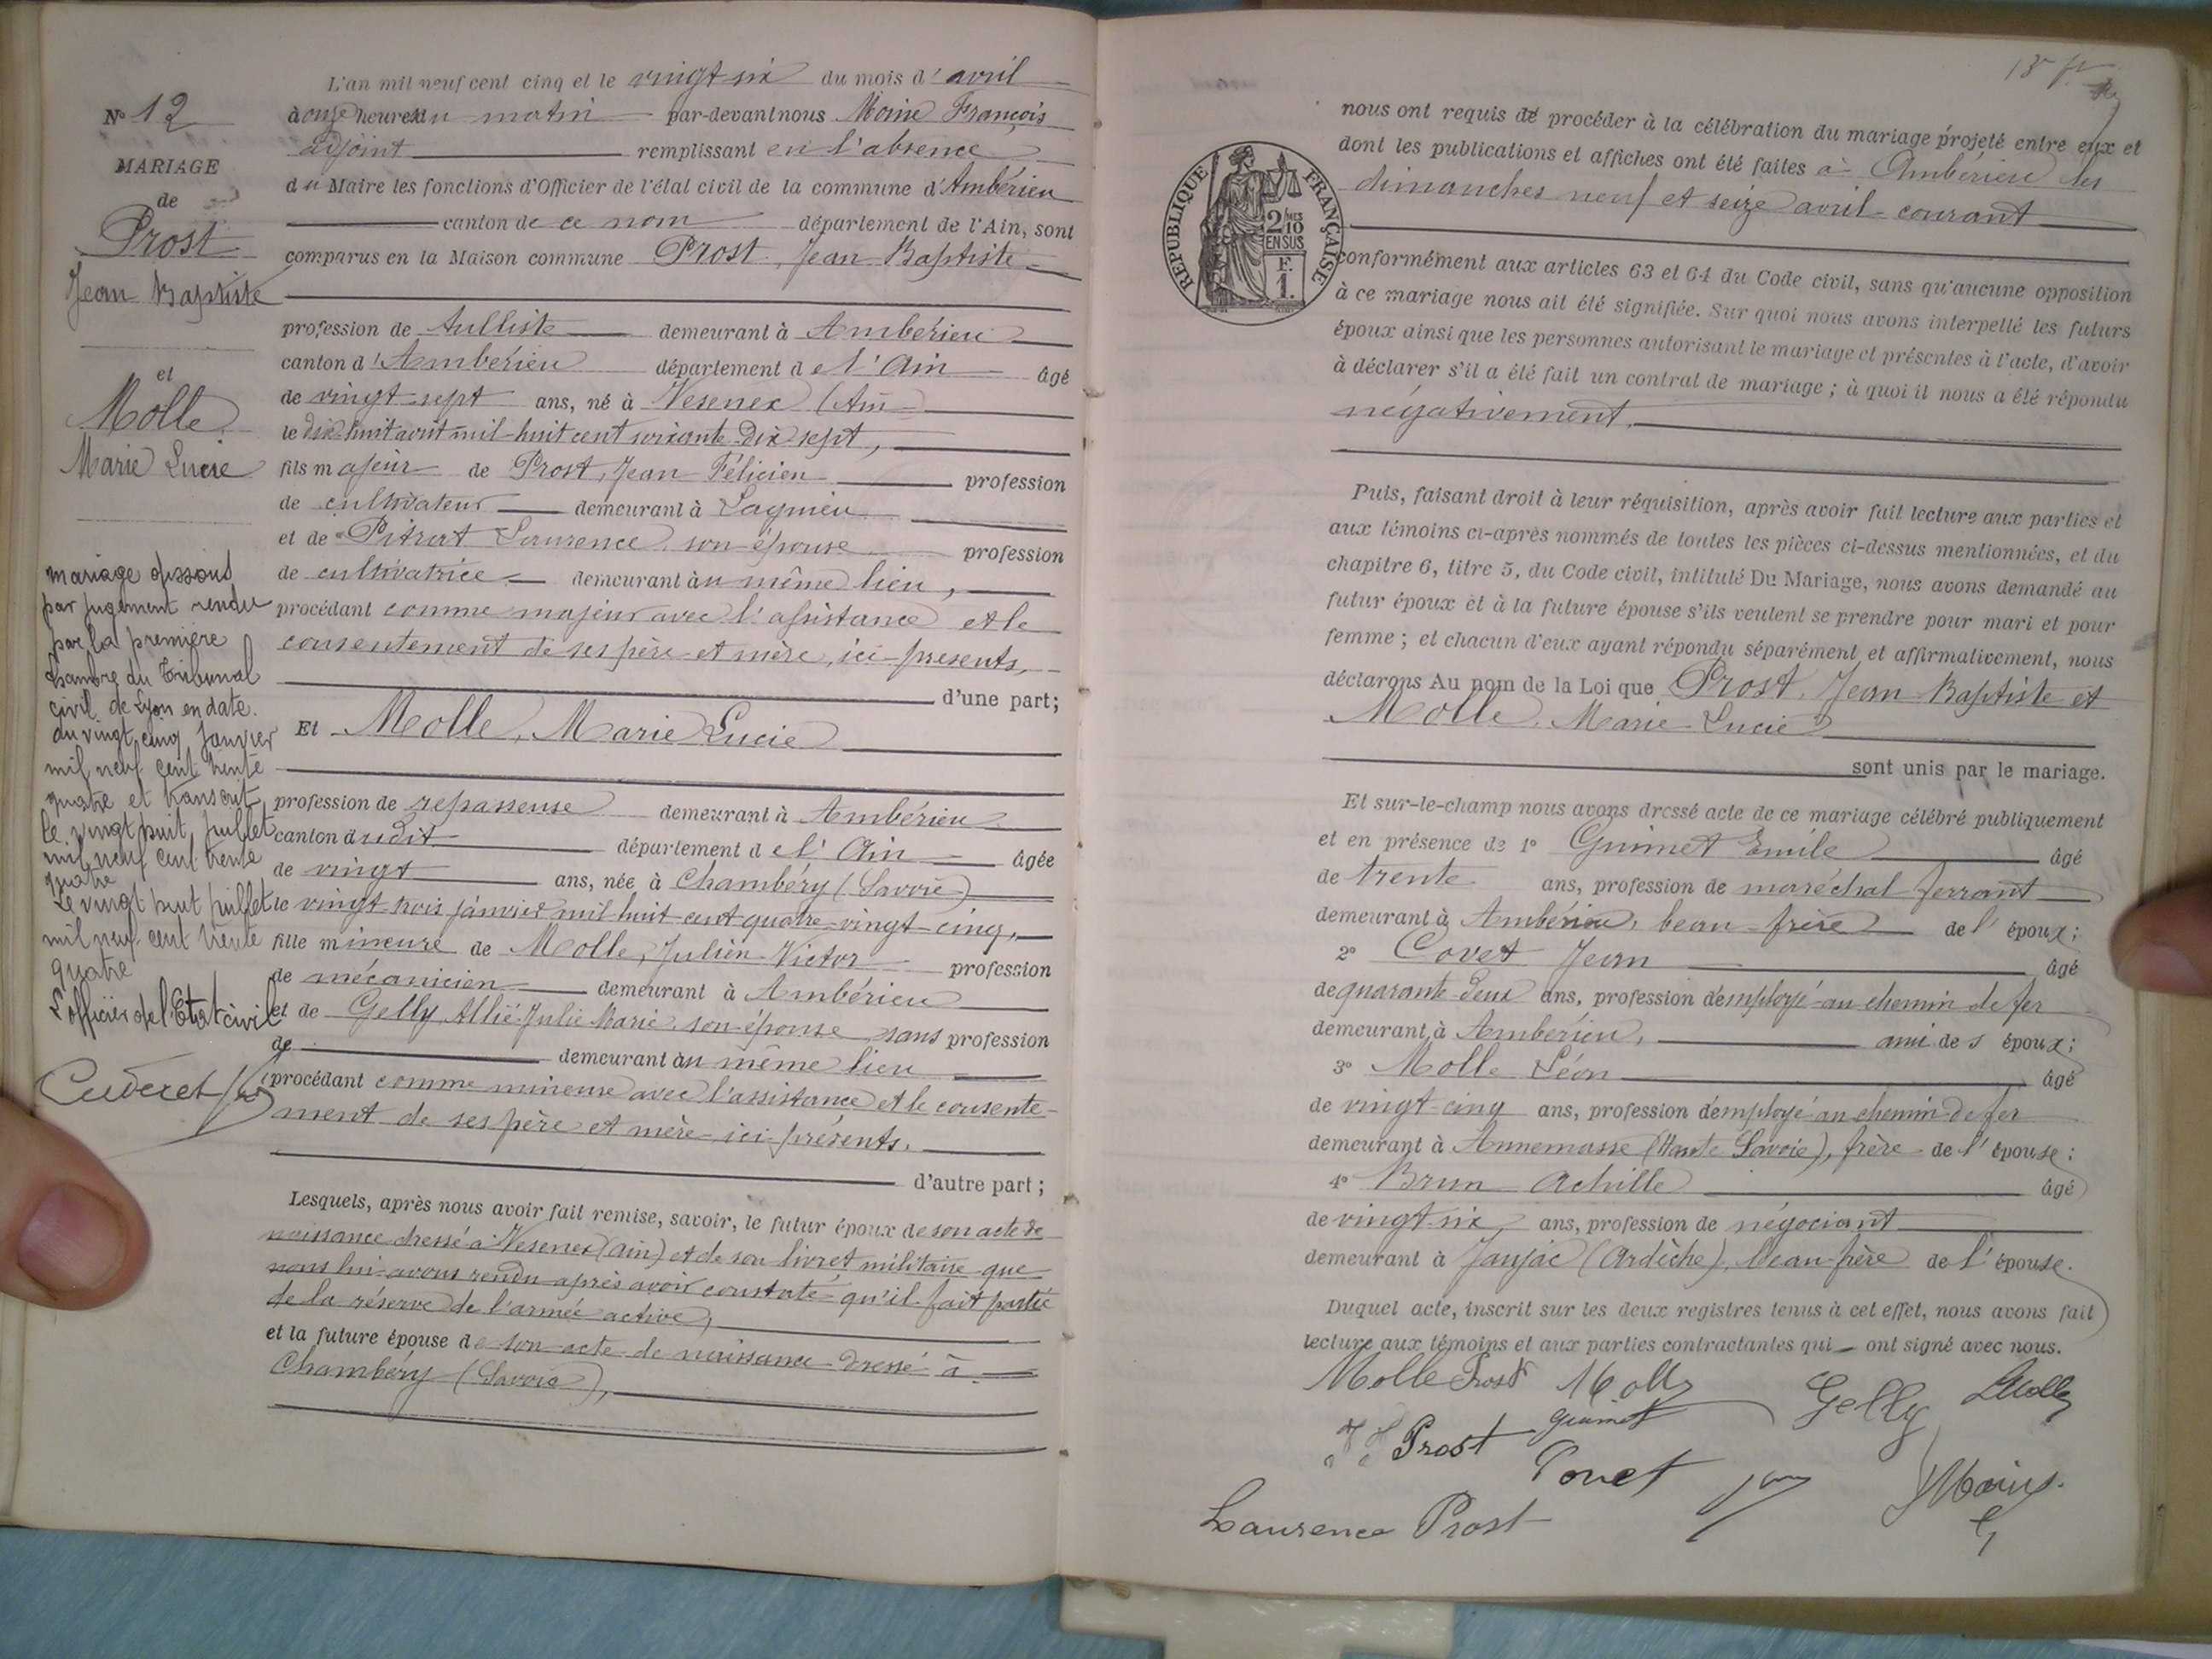 N° 12
MARIAGE
de
Prost
Jean Baptiste
et
Molle
Marie Lucie
mariage dissous
par jugement rendu
par la première
chambre du Tribunal
civil de Lyon en date
du vingt cinq Janvier
mil neuf cent trente
quatre et transcrit
le vingt huit Juillet
mil neuf cent trente
quatre
Le vingt huit Juillet
mil neuf cent trente
quatre
L'officier de l'Etat civil
L'an mil neuf cent cinq et le vingt-six du mois d'avril
à onze heures du matin par-devant nous Moine François
adjoint remplissant en l'absence
du Maire les fonctions d'Officier de l'état civil de la commune d'Ambérieu
canton de ce nom département de l'Ain, sont
comparus en la Maison commune Prost, Jean Baptiste
profession de tulliste demeurant à Ambérieu
canton d'Ambérieu département de l'Ain âgé
de vingt-sept ans, né à Vesenex (Ain)
le dix-huit août mil-huit cent soixante-dix sept,
fils majeur de Prost, Jean Félicien profession
de cultivateur demeurant à Lagnieu
et de Pitrat Laurence son épouse profession
de cultivatrice demeurant au même lieu,
procédant comme majeur avec l'assistance et le
consentement de ses père et mère, ici présents,
d'une part;
Et Molle, Marie Lucie
profession de repasseuse demeurant à Ambérieu
canton dudit département de l'Ain âgée
de vingt ans, née à Chambéry (Savoie)
le vingt-trois janvier mil huit cent quatre-vingt-cinq,
fille mineure de Molle, Julien Victor profession
de mécanicien demeurant à Ambérieu
et de Gelly Julie Marie son épouse sans profession
de demeurant au même lieu
procédant comme mineure avec l'assistance et le consente-
ment de ses père et mère ici présents,
d'autre part;
Lesquels, après nous avoir fait remise, savoir, le futur époux de son acte de
naissance dressé à Vesenex (Ain) et de son livret militaire que
nous lui avons rendu après avoir constaté qu'il fait partie
de la réserve de l'armée active,
et la future épouse de son acte de naissance dressé à
Chambéry (Savoie),
nous ont requis de procéder à la célébration du mariage projeté entre eux et
dont les publications et affiches ont été faites à Ambérieu les
dimanches neuf et seize avril courant
RÉPUBLIQUE FRANÇAISE
2/10 EN SUS
F. 1.
conformément aux articles 63 et 64 du Code civil, sans qu'aucune opposition
à ce mariage nous ait été signifiée. Sur quoi nous avons interpellé les futurs
époux ainsi que les personnes autorisant le mariage et présentes à l'acte, d'avoir
à déclarer s'il a été fait un contrat de mariage; à quoi il nous a été répondu
négativement.
Puis, faisant droit à leur réquisition, après avoir fait lecture aux parties et
aux témoins ci-après nommés de toutes les pièces ci-dessus mentionnées, et du
chapitre 6, titre 5, du Code civil, intitulé Du Mariage, nous avons demandé au
futur époux et à la future épouse s'ils veulent se prendre pour mari et pour
femme; et chacun d'eux ayant répondu séparément et affirmativement, nous
déclarons Au nom de la Loi que Prost, Jean Baptiste et
Molle, Marie Lucie
sont unis par le mariage.
Et sur-le-champ nous avons dressé acte de ce mariage célébré publiquement
et en présence de 1° Guimet Emile âgé
de trente ans, profession de maréchal ferrant
demeurant à Ambérieu, beau-frère de l'époux;
2° Covet Jean âgé
de quarante-deux ans, profession d'employé au chemin de fer
demeurant à Ambérieu, ami des époux;
3° Molle Léon âgé
de vingt-cinq ans, profession d'employé au chemin de fer
demeurant à Annemasse (Haute Savoie), frère de l'épouse;
4° Brun Achille âgé
de vingt-six ans, profession de négociant
demeurant à Jaujac (Ardèche), beau-frère de l'épouse.
Duquel acte, inscrit sur les deux registres tenus à cet effet, nous avons fait
lecture aux témoins et aux parties contractantes qui ont signé avec nous.
Molle Prost Molle Gelly LMolle
Prost Guimet
Covet
Laurence Prost